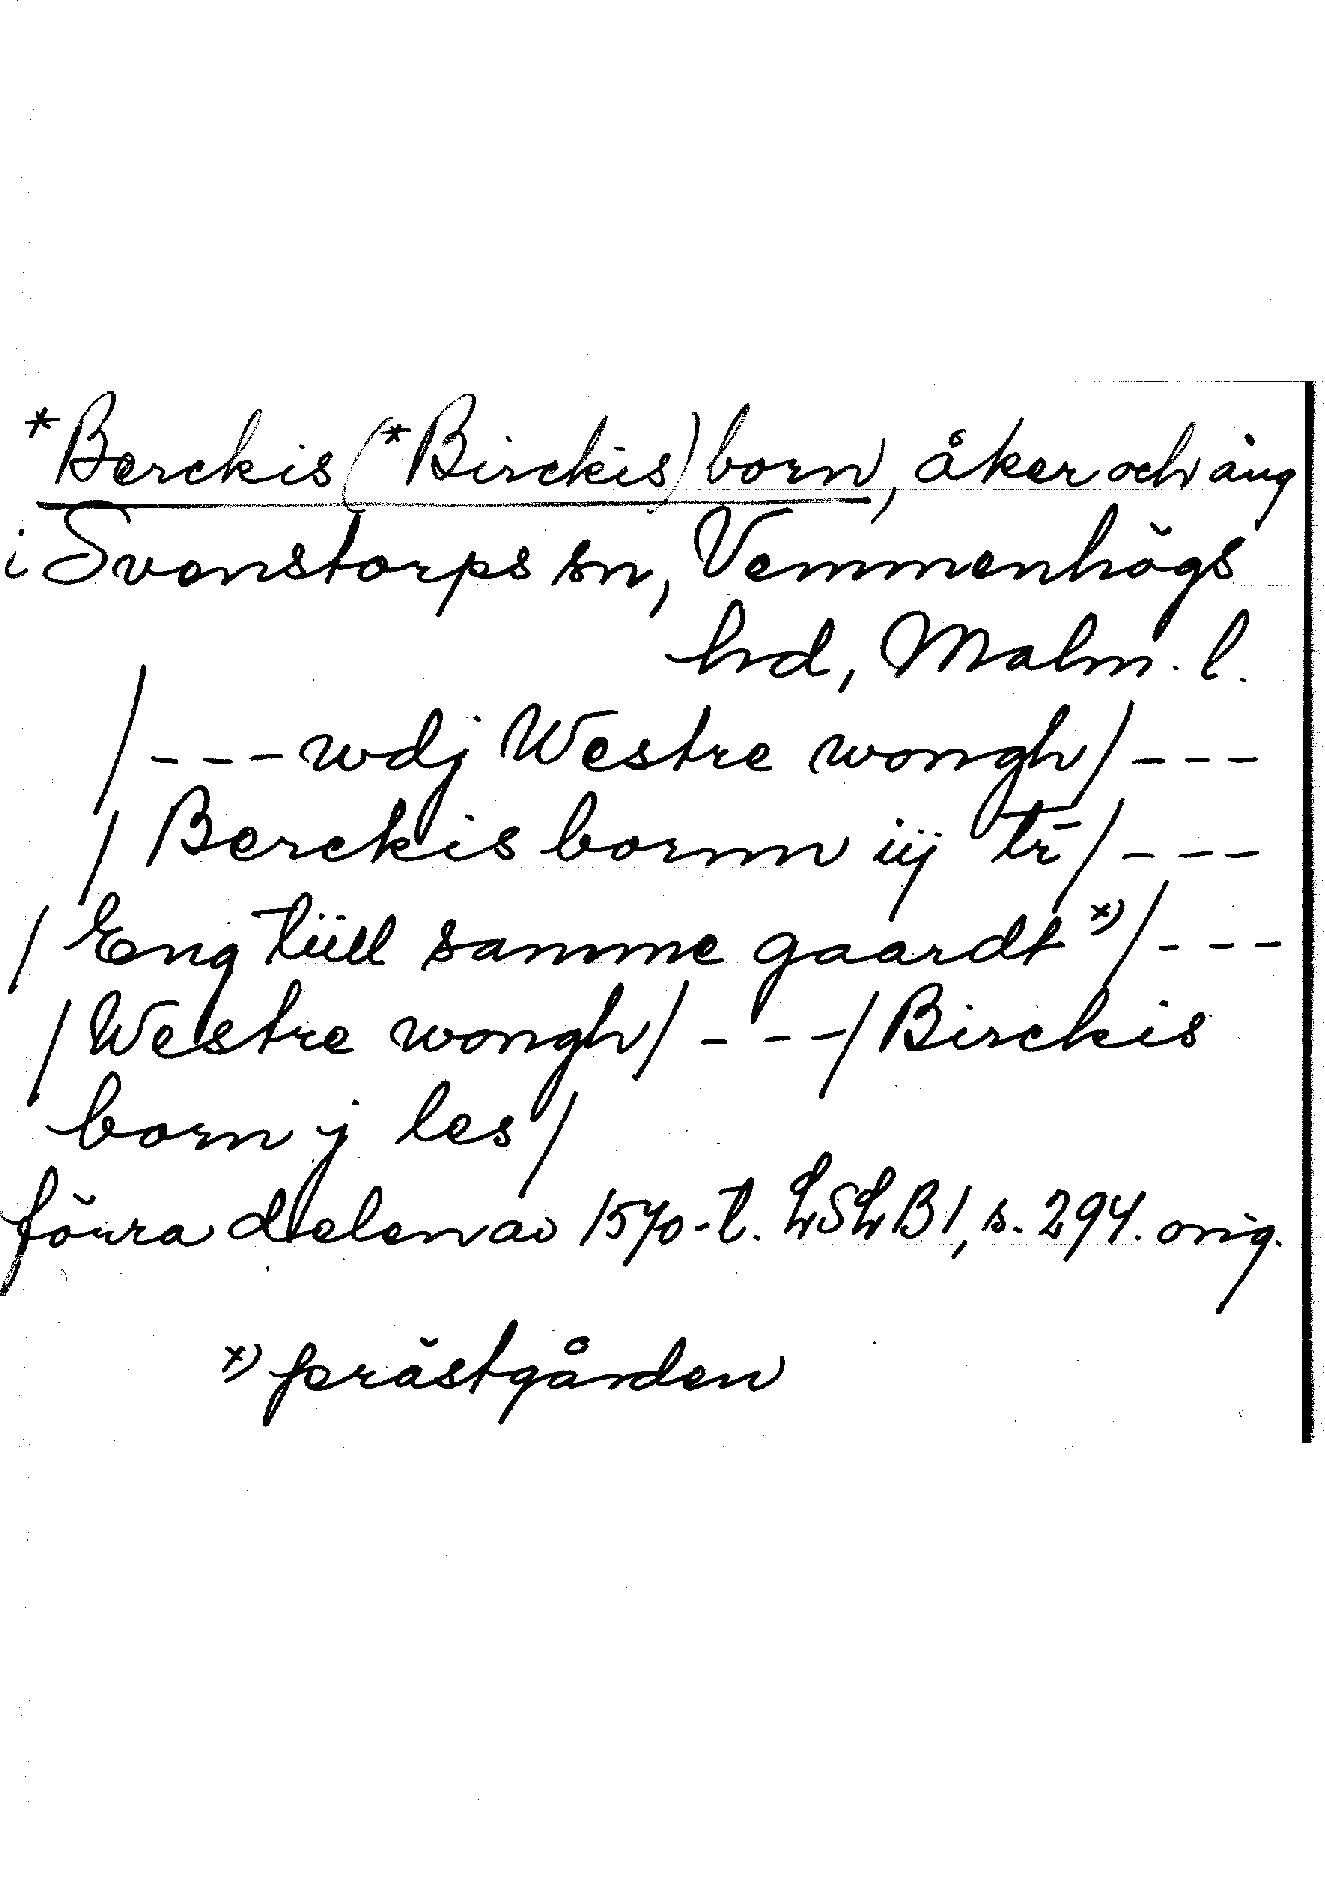 *Berckis (*Birckis) born, åker och äng
i Svenstorps sn, Vemmenhögs
hd, Malm. l.
/---wdj Westre wongh/---
/Berckis bornn iij tr̄/---
/Eng tiill samme gaardt *)/---
/Westre wongh/---/Birckis
born j les/
förra delen av 1570-t. LSLB1, s. 294. orig.
*) prästgården